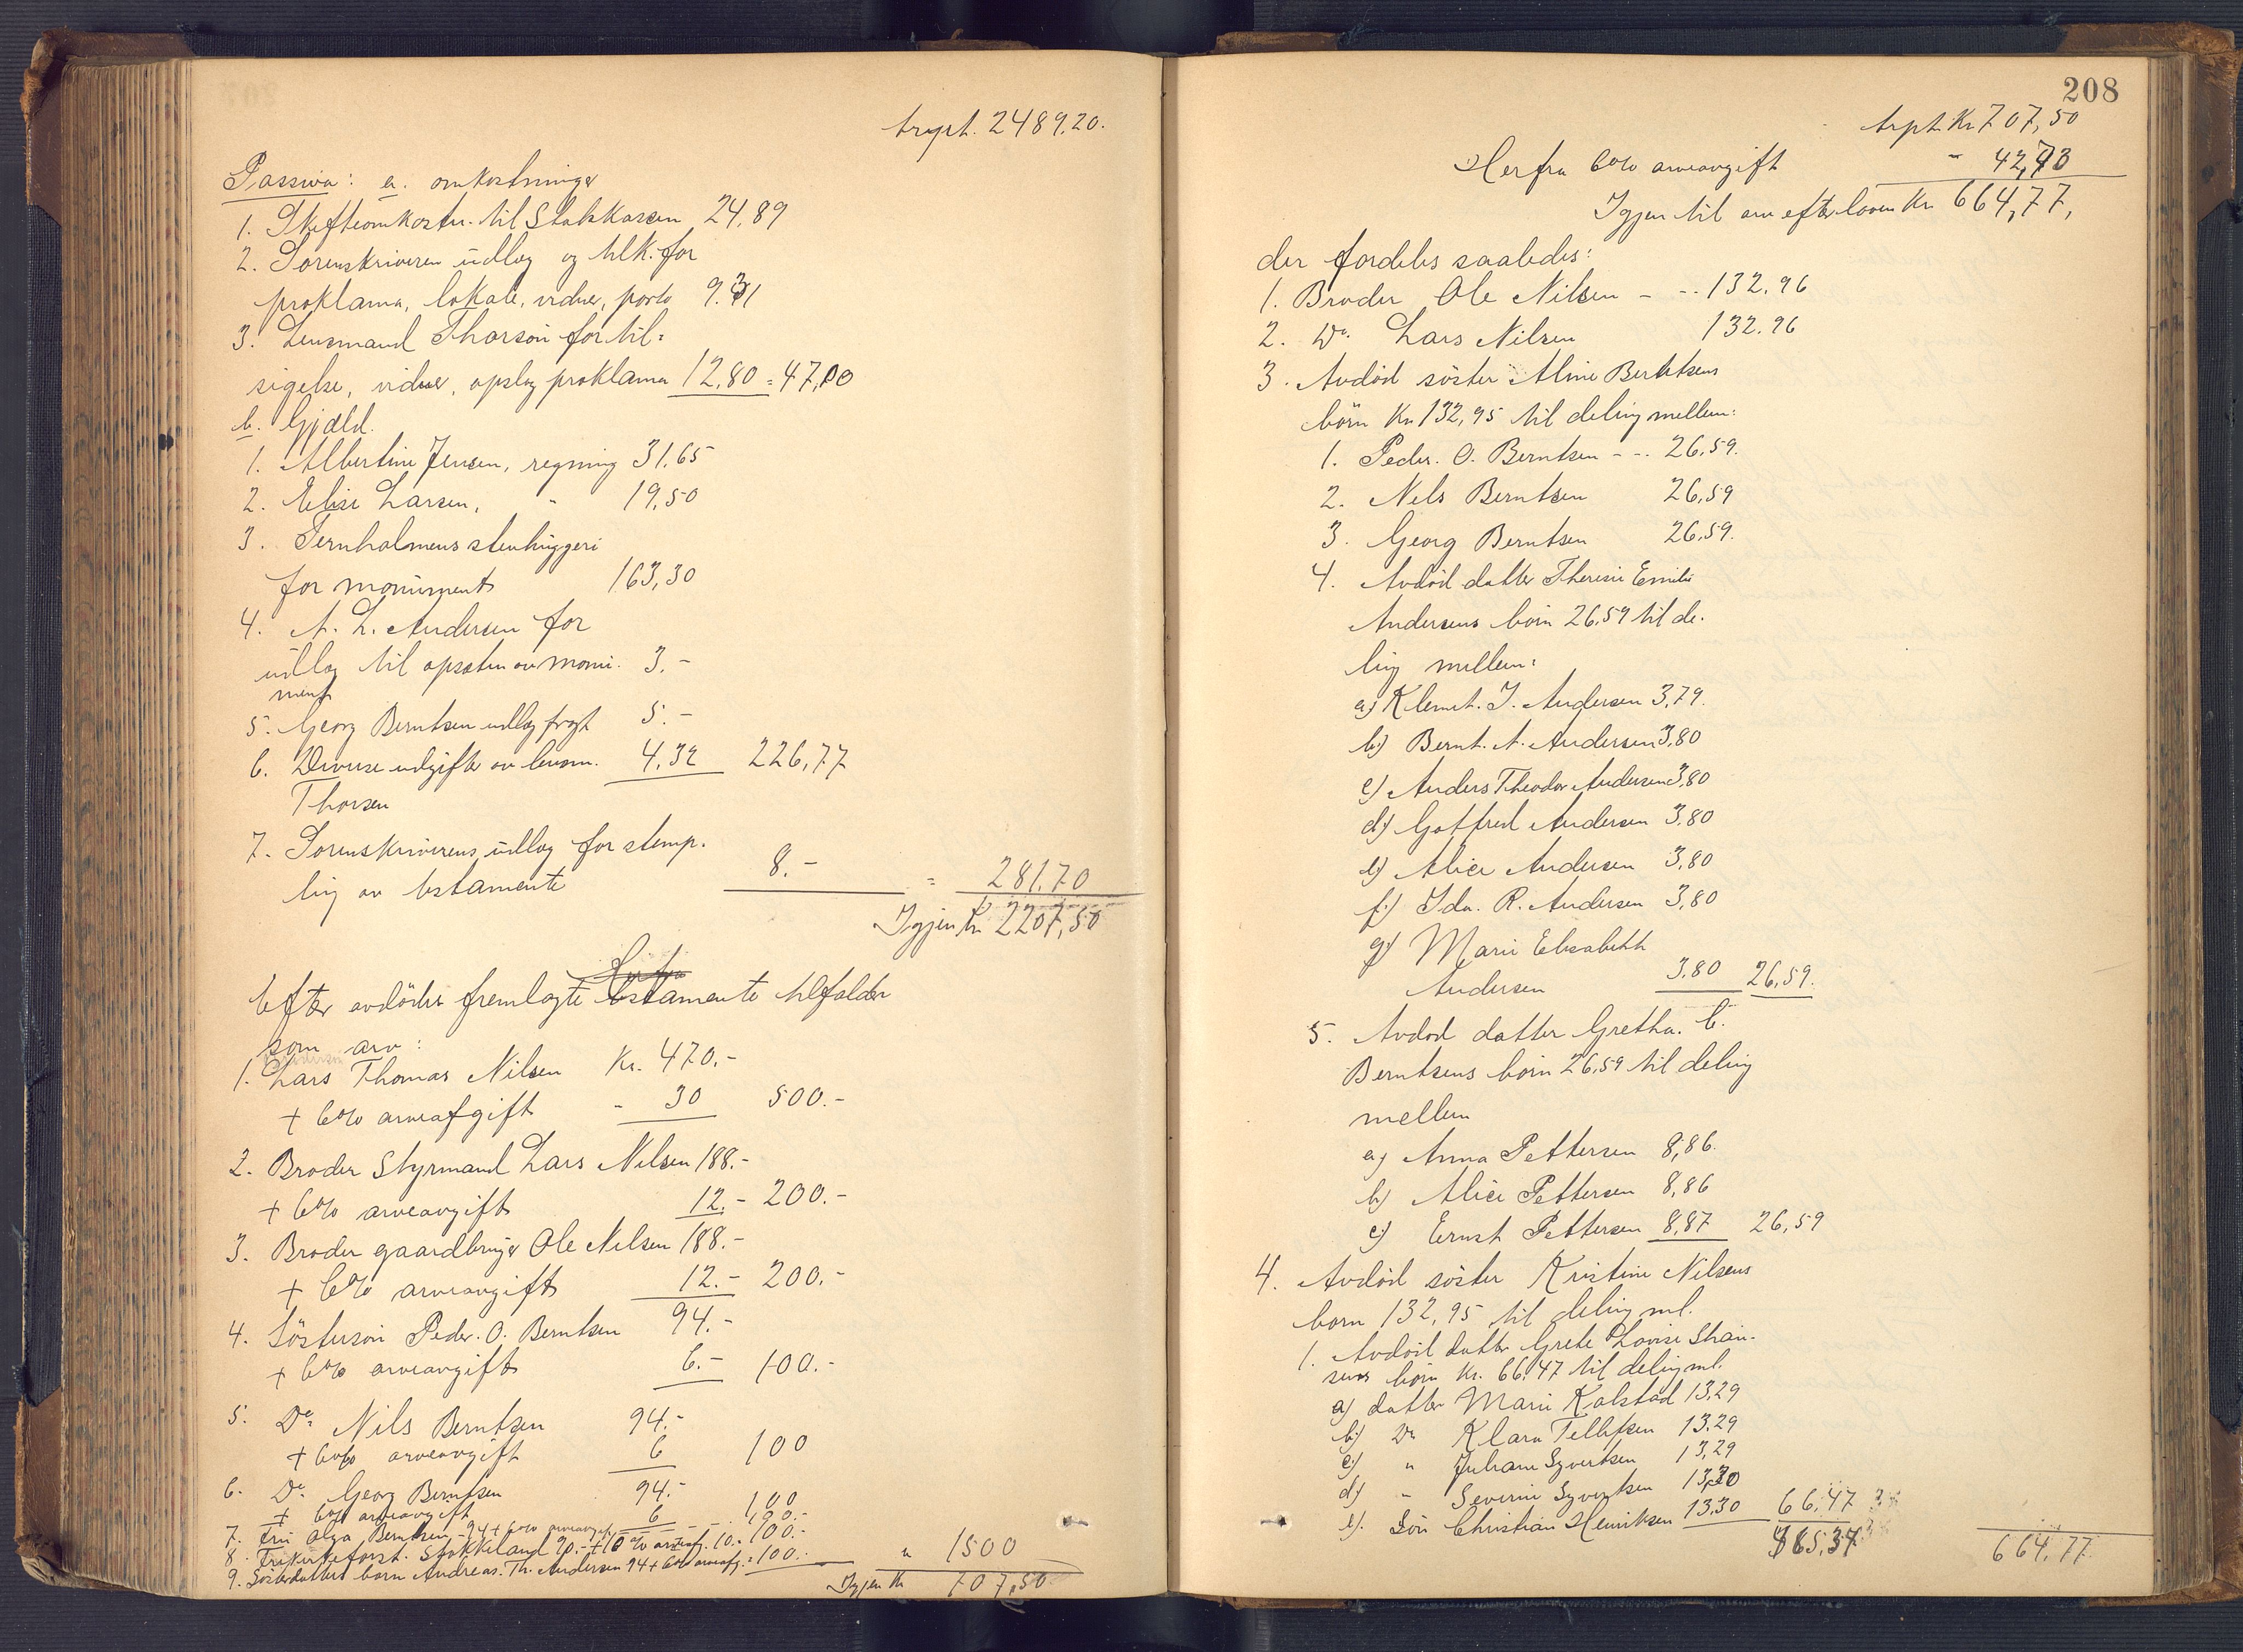 trspt. 2489.20.
Passiva: a. omkostninger
1. Skifteomkostn. til Statskassen 24,89
2. Sorenskriveren udlæg og tilk. for
proklama, lokale, vidner, porto 9.31
3. Lensmand Thorson for til-
sigelse, vidner, opslag proklama 12,80 = 47,00
b. Gjæld.
1. Albertine Jensen, regning 31.65
2. Elise Larsen, " 19,50
3. Fernholmens stenhuggeri
for monument 163,30
4. A. L. Andersen for
udlæg til opsæten av monu- 3.-
ment
5. Georg Berntsen udlæg fragt 5.-
6. Diverse udgifter av lensm. 4,32 226,77
Thorsen
7. Sorenskriverens udlæg for stemp-
ling av testamente 8.- = 281.70
Igjen Kr 2207,50
Efter avdødes fremlagte testamente tilfalder
som arv:
1. Lars Thomas Nilsen Kr. 470.-
+ 6% arveafgift " 30 500.-
2. Broder Styrmand Lars Nilsen 188.-
+ 6% arveavgift 12.- 200.-
3. Broder gaardbruger Ole Nilsen 188.-
+ 6% arveavgift 12.- 200.-
4. Søstersøn Peder. O. Berntsen 94.-
+ 6% arveavgift 6.- 100.-
5. Do Nils Berntsen 94.-
+ 6% arveavgift 6 100
6. Do Georg Berntsen 94.-
+ 6% arveavgift 6 100
7. Fru Olga Berntsen, 94 + 6% arveavgift 100.-
8. Frikirkeforst. Stokkeland 90.- + 10% arveafg. 10.- 100.-
9. Søsterdatters børn Andreas. Th. Andersen 94 + 6% arveafg. = 100.- " 1500
Igjen Kr 707,50
208
trspt. Kr 707,50
Herfra 6% arveavgift " 42,73
Igjen til arv efter loven Kr 664,77,
der fordeles saaledes:
1. Broder Ole Nilsen - -- 132.96
2. Do Lars Nilsen 132.96
3. Avdød søster Aline Berntsens
børn Kr 132,95 til deling mellem:
1. Peder. O. Berntsen - -. 26,59.
2. Nils Berntsen 26,59
3. Georg Berntsen 26,59.
4. Avdød datter Therese Emilie
Andersens børn 26,59 til de-
ling mellem:
a) Klemet. J. Andersen 3,79.
b) Bernt. A. Andersen 3,80
c) Anders Theodor Andersen 3,80
d) Gotfred Andersen 3,80
e) Alice Andersen 3,80
f) Ida. R. Andersen 3,80
g) Marie Elisabeth
Andersen 3,80 26,59.
5. Avdød datter Gretha. C.
Berntsens børn 26,59 til deling
mellem
a) Anna Pettersen 8,86.
b) Alice Pettersen 8,86
c) Ernst Pettersen 8,87 26,59
4. Avdød søster Kristine Nilsens
børn 132,95 til deling ml.
1. Avdød datter Grete Lovise
børn Kr. 66,47 til deling ml.
a) datter Marie Kalstad 13,29
b) Do Klara Tellefsen 13,29
c) " Juliane Syvertsen 13,29
d) " Severine Syvertsen 13,30
e) Søn Christian Henriksen 13,30 66,47
665,37 664,77